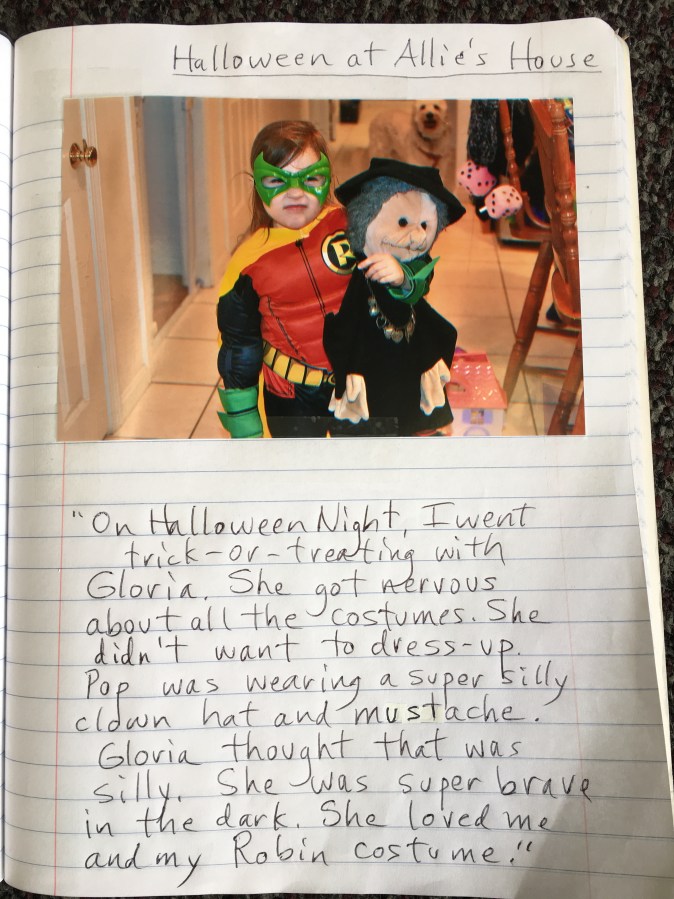 Halloween at Allie's House
R
"On Halloween Night, I went
trick-or-treating with
Gloria. She got nervous
about all the costumes. She
didn't want to dress-up.
Pop was wearing a super silly
clown hat and mustache.
Gloria thought that was
silly. She was super brave
in the dark. She loved me
and my Robin costume."